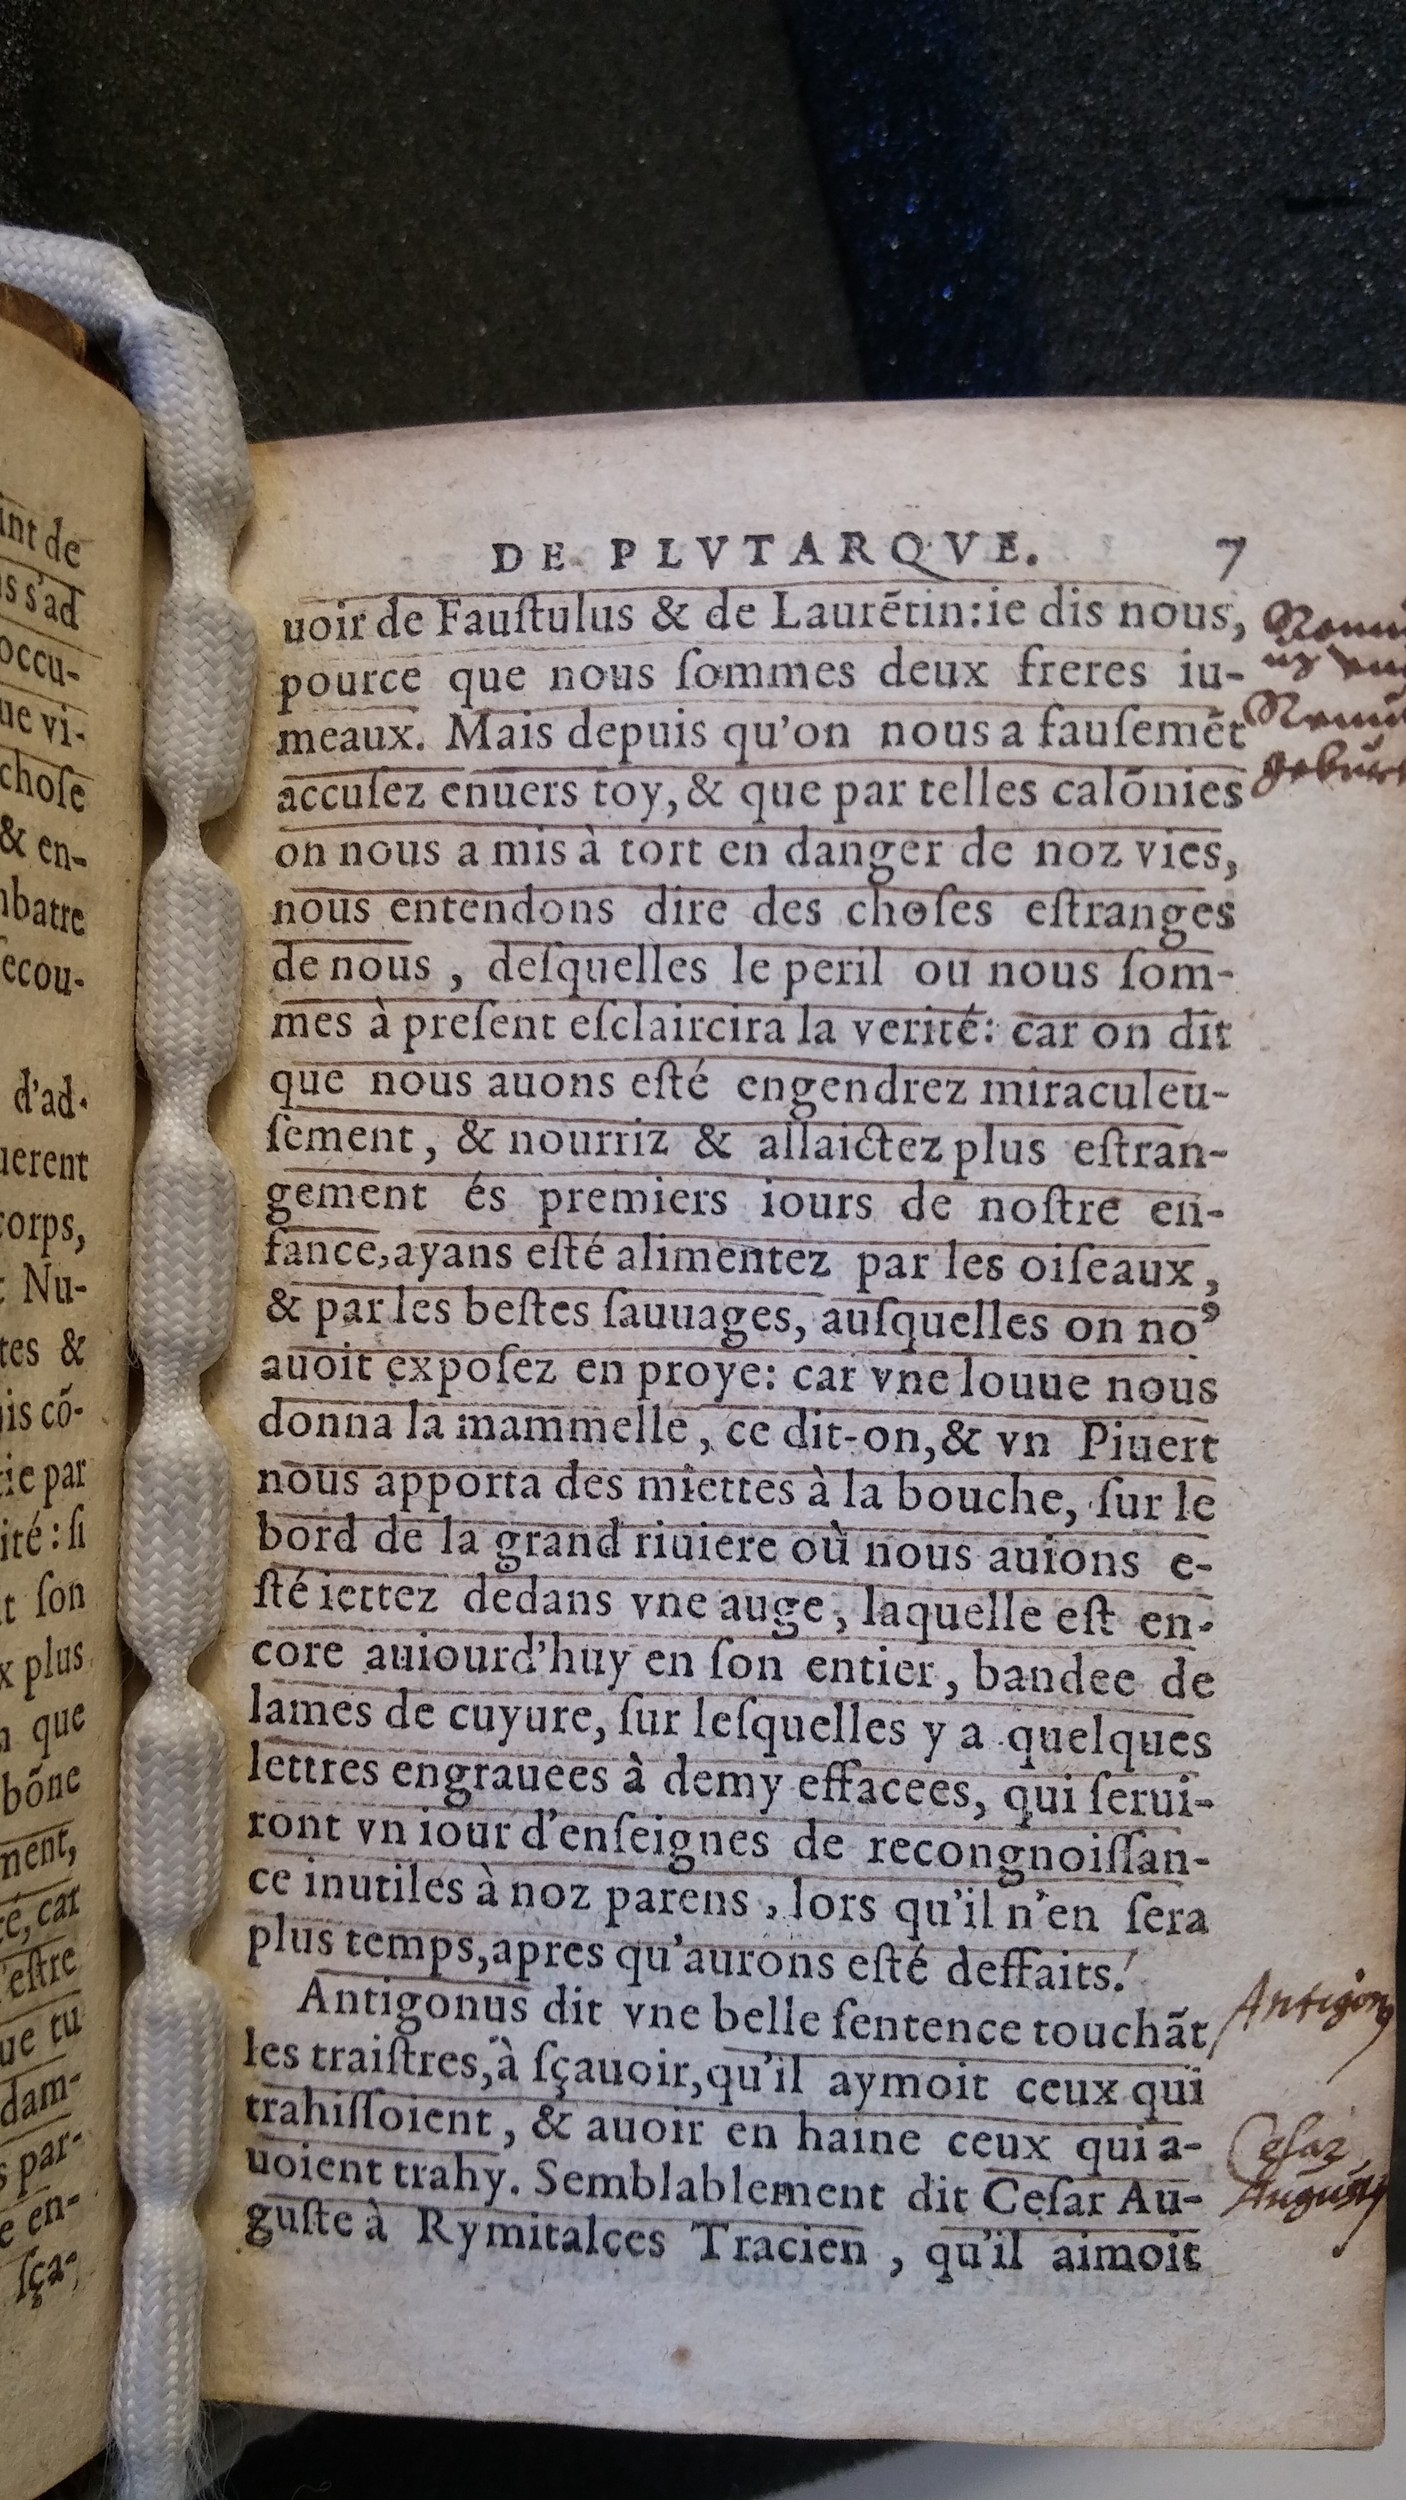 int de
s s'ad
occu-
ue vi-
choſe
& en-
batre
ecou-
d'ad-
uerent
corps,
Nu-
tes &
is cõ-
tie par
ité: ſi
t ſon
x plus
que
bõne
ment,
ré, car
l'eſtre
ue tu
dam-
s par-
e en-
ſça-
DE PLVTARQVE. 7
uoir de Fauſtulus & de Laurẽtin: ie dis nous,
pource que nous ſommes deux freres iu-
meaux. Mais depuis qu'on nous a fauſemẽt
accuſez enuers toy, & que par telles calõnies
on nous a mis à tort en danger de noz vies,
nous entendons dire des choſes eſtranges
de nous, deſquelles le peril ou nous ſom-
mes à preſent eſclaircira la verité: car on dit
que nous auons eſté engendrez miraculeu-
ſement, & nourriz & allaictez plus eſtran-
gement és premiers iours de noſtre en-
fance, ayans eſté alimentez par les oiſeaux,
& par les beſtes ſauuages, auſquelles on no⁹
auoit expoſez en proye: car vne louue nous
donna la mammelle, ce dit-on, & vn Piuert
nous apporta des miettes à la bouche, ſur le
bord de la grand riuiere où nous auions e-
ſté iettez dedans vne auge, laquelle eſt en-
core auiourd'huy en ſon entier, bandee de
lames de cuyure, ſur leſquelles y a quelques
lettres engrauees à demy effacees, qui ſerui-
ront vn iour d'enſeignes de recongnoiſſan-
ce inutiles à noz parens, lors qu'il n'en ſera
plus temps, apres qu'aurons eſté deffaits.
Antigonus dit vne belle ſentence touchãt
les traiſtres, à ſçauoir, qu'il aymoit ceux qui
trahiſſoient, & auoir en haine ceux qui a-
uoient trahy. Semblablement dit Ceſar Au-
guſte à Rymitalces Tracien, qu'il aimoit
Antigon⁹
Ceſar
Auguſt⁹